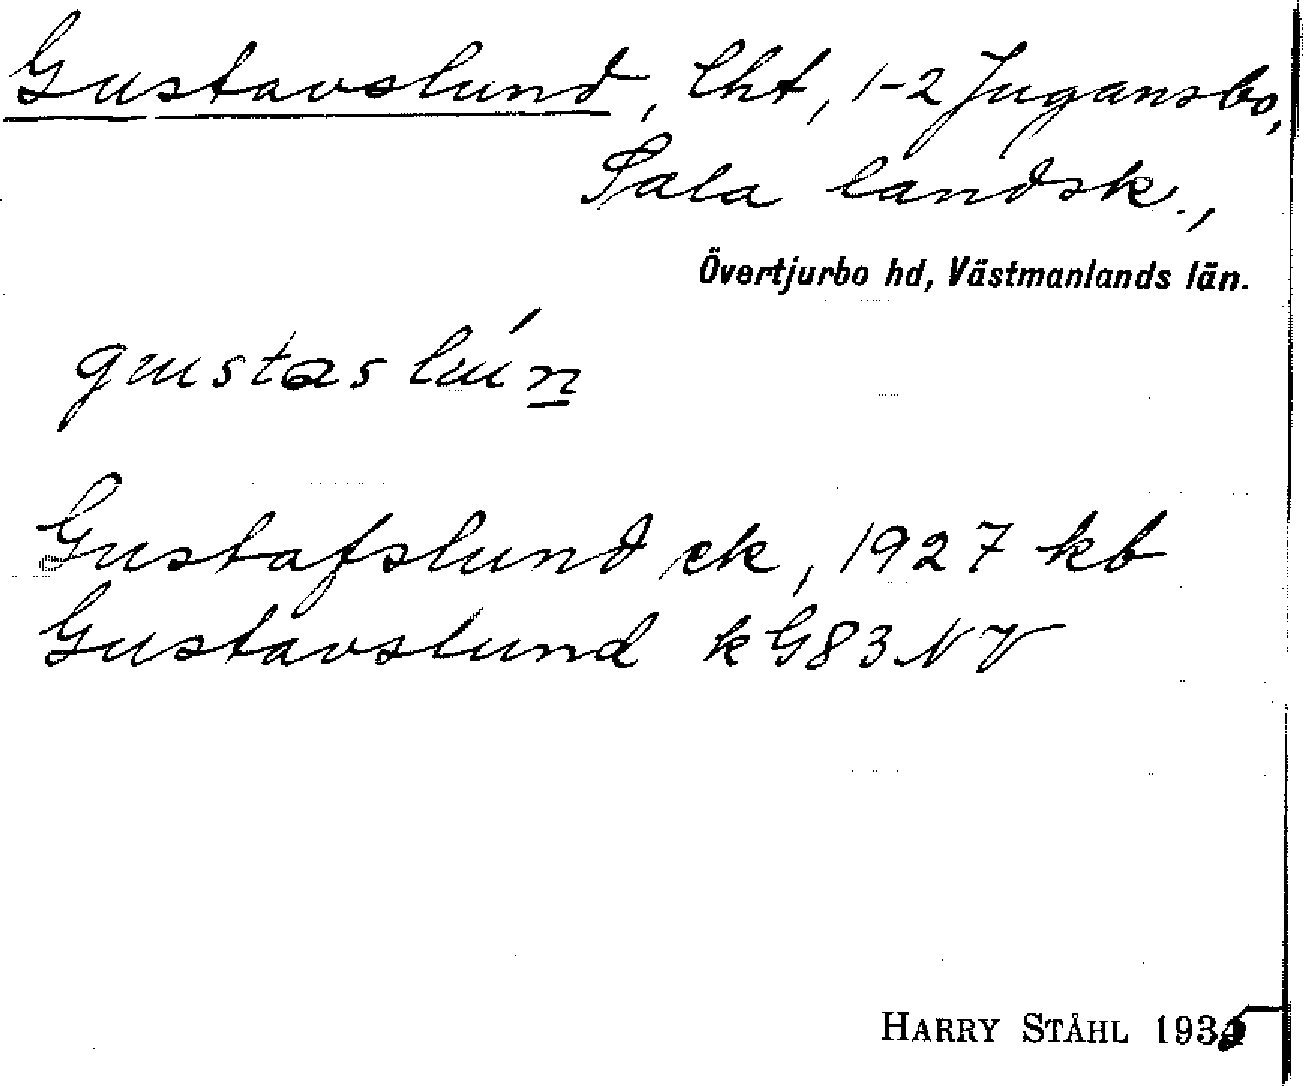 Gustavslund, lht, 1-2 Jugansbo,
Sala landsk.,
Övertjurbo hd, Västmanlands län.
gustaslún
Gustafslund ek, 1927 kb
Gustavslund k G83 NV
HARRY STÅHL 1935